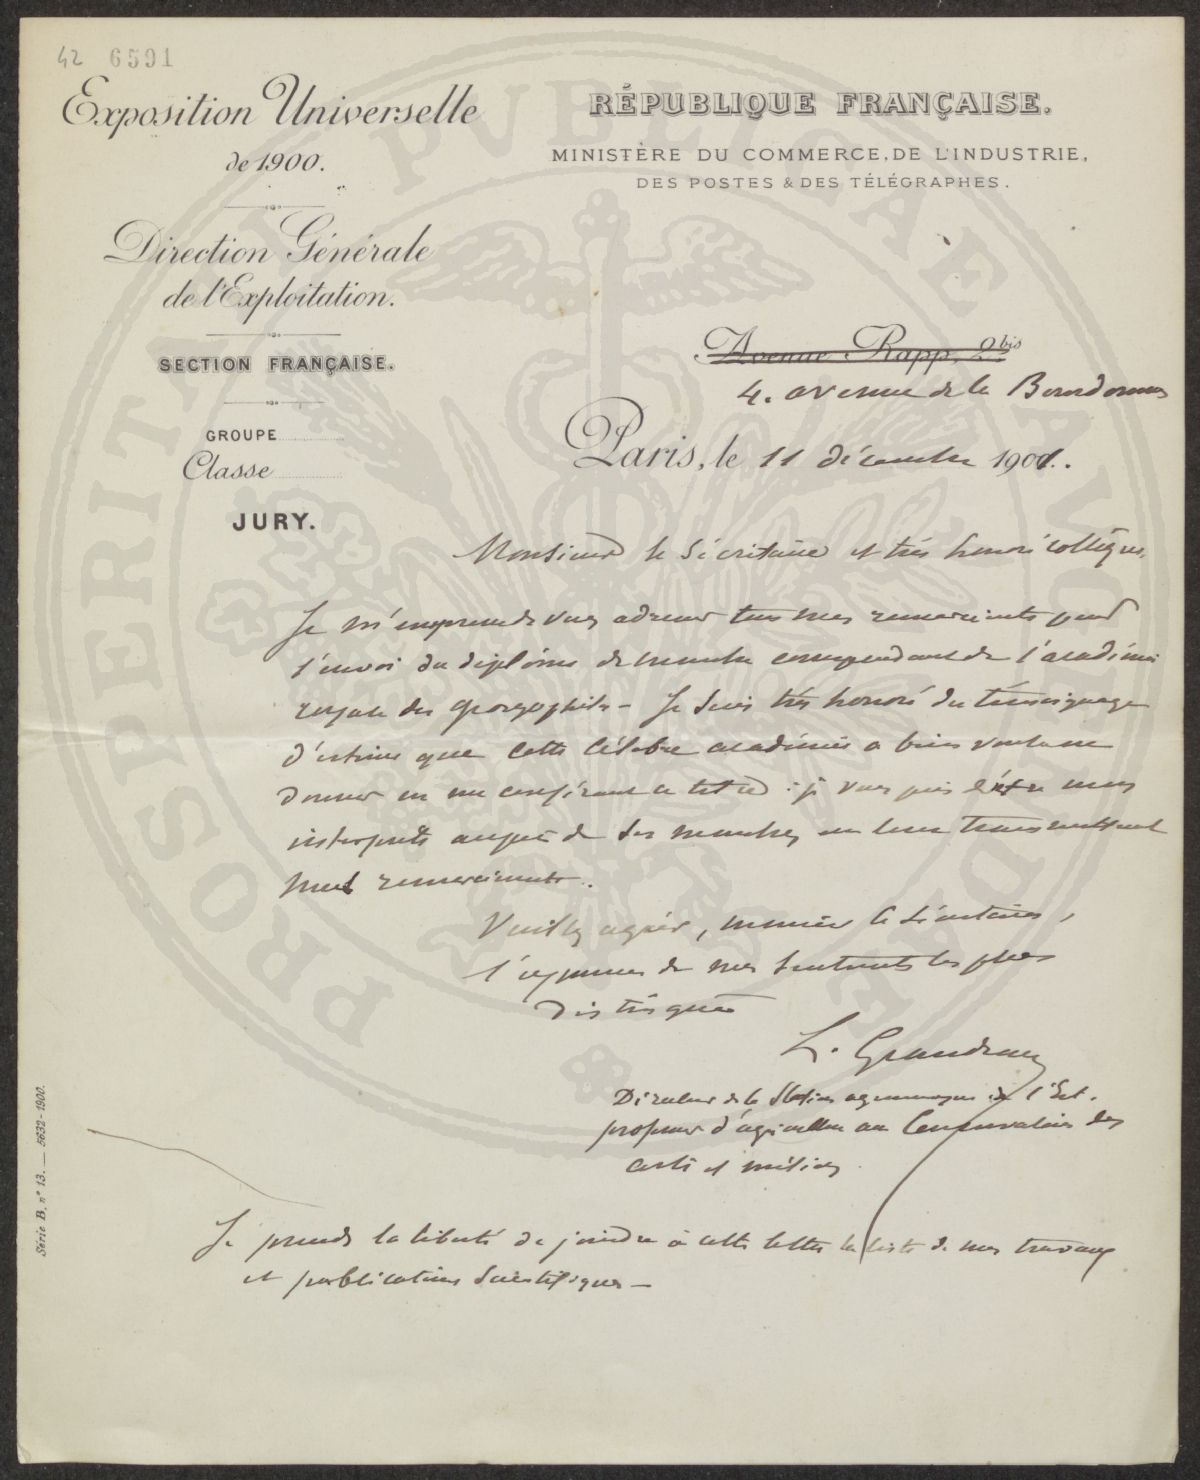 42 6591
Exposition Universelle
de 1900.
Direction Générale
de l'Exploitation.
SECTION FRANÇAISE.
GROUPE
Classe
JURY.
RÉPUBLIQUE FRANÇAISE.
MINISTÈRE DU COMMERCE, DE L'INDUSTRIE,
DES POSTES & DES TÉLÉGRAPHES.
Avenue Rapp, 2bis
4. avenue de la Bourdonnais
Paris, le 11 décembre 1901.
Monsieur le Secrétaire et très honoré collègue,
Je m'empresse de vous adresser tous mes remerciements pour
l'envoi du diplôme de membre correspondant de l'académie
royale des georgophiles – Je suis très honoré du témoignage
d'estime que cette célèbre académie a bien voulu me
donner en me conférant ce titre : je vous prie d'être mon
interprète auprès de ses membres en leur transmettant
mes remerciments.
Veuillez agréer, monsieur le Secrétaire,
l'expression de mes sentiments les plus
distingués
L. Grandeau
Directeur de la Station agronomique de l'Est.
professeur d'agriculture au Conservatoire des
arts et métiers
Je prends la liberté de joindre à cette lettre la liste de mes travaux
et publications scientifiques –
Série B, n° 13. — 5632-1900.
PROSPERITATI PVBLICAE AVGENDAE